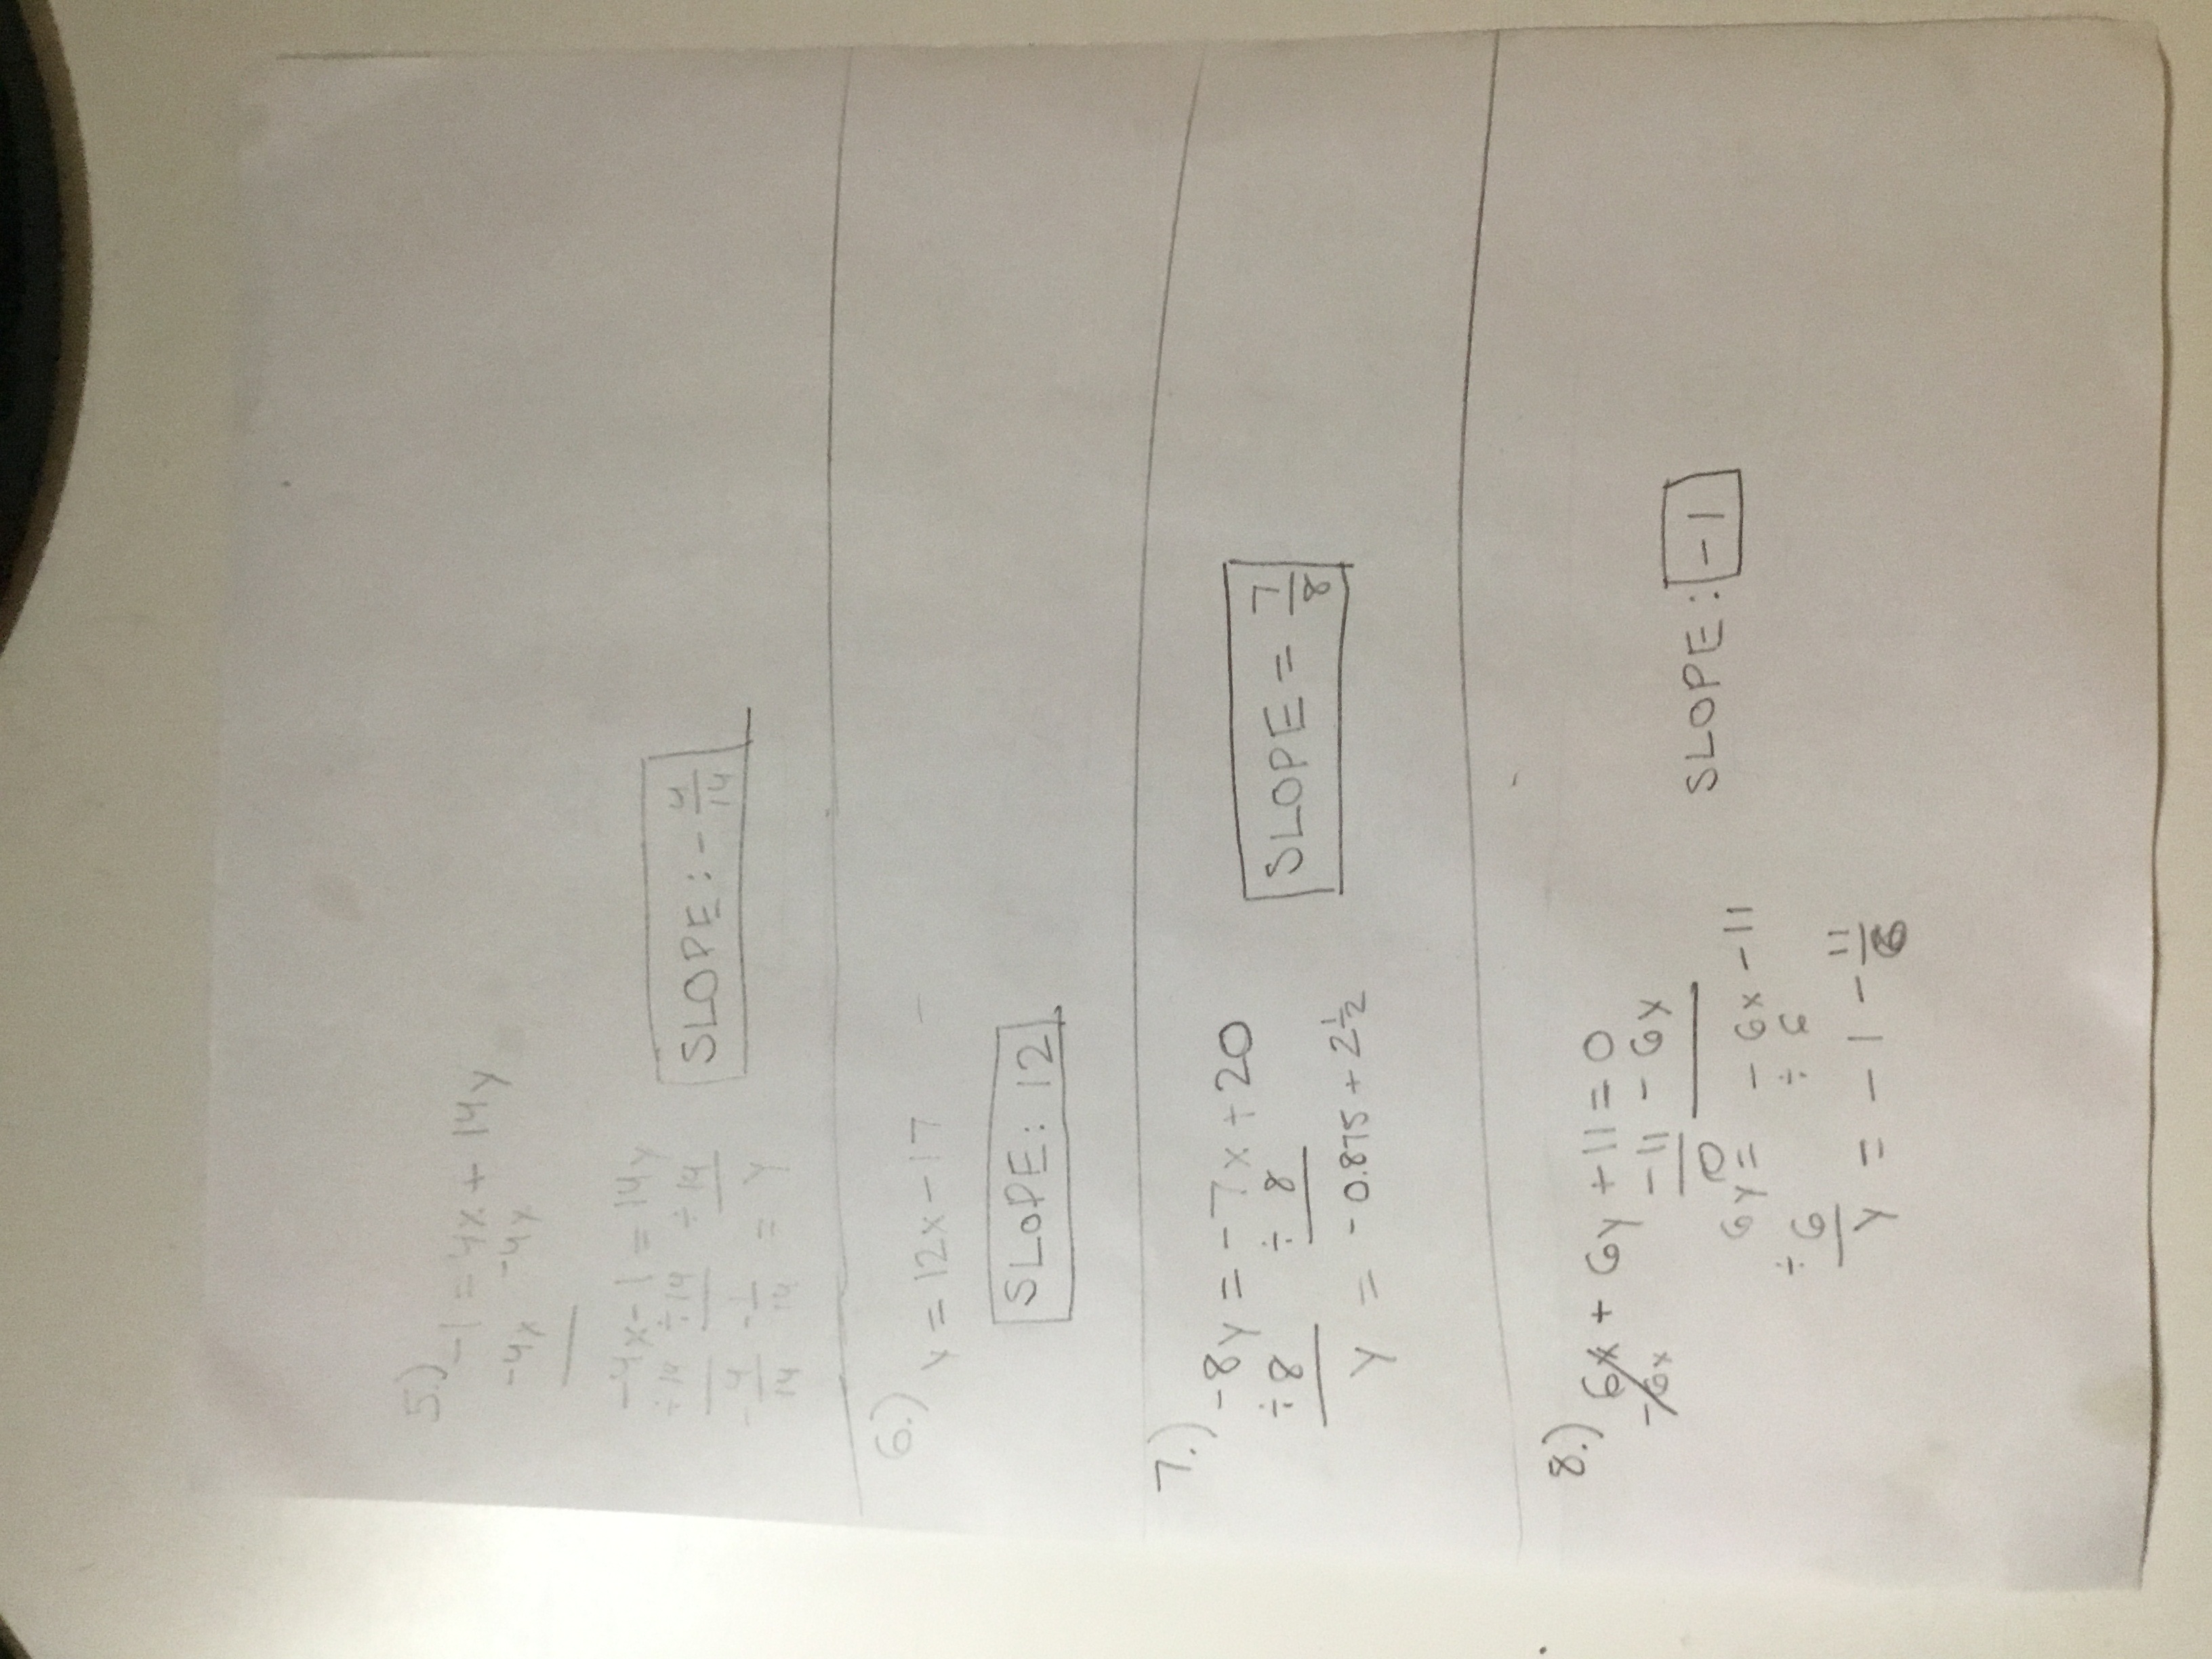 5.) -1 = 4x + 14y
-4x -4x
-4x - 1 = 14y
÷14 ÷14 ÷14
-4/14 - 1/14 = y
SLOPE: - 4/14
6.) y = 12x - 17
SLOPE: 12
7.) -8y = -7x + 20
÷8 ÷ 8
y = -0.875 + 2 1/2
SLOPE = 7/8
8.) 6x + 6y + 11 = 0
-6x -11 - 6x
0
6y = - 6x - 11
÷ 6 ÷ 6
y = - 1 - 11/6
SLOPE: -1